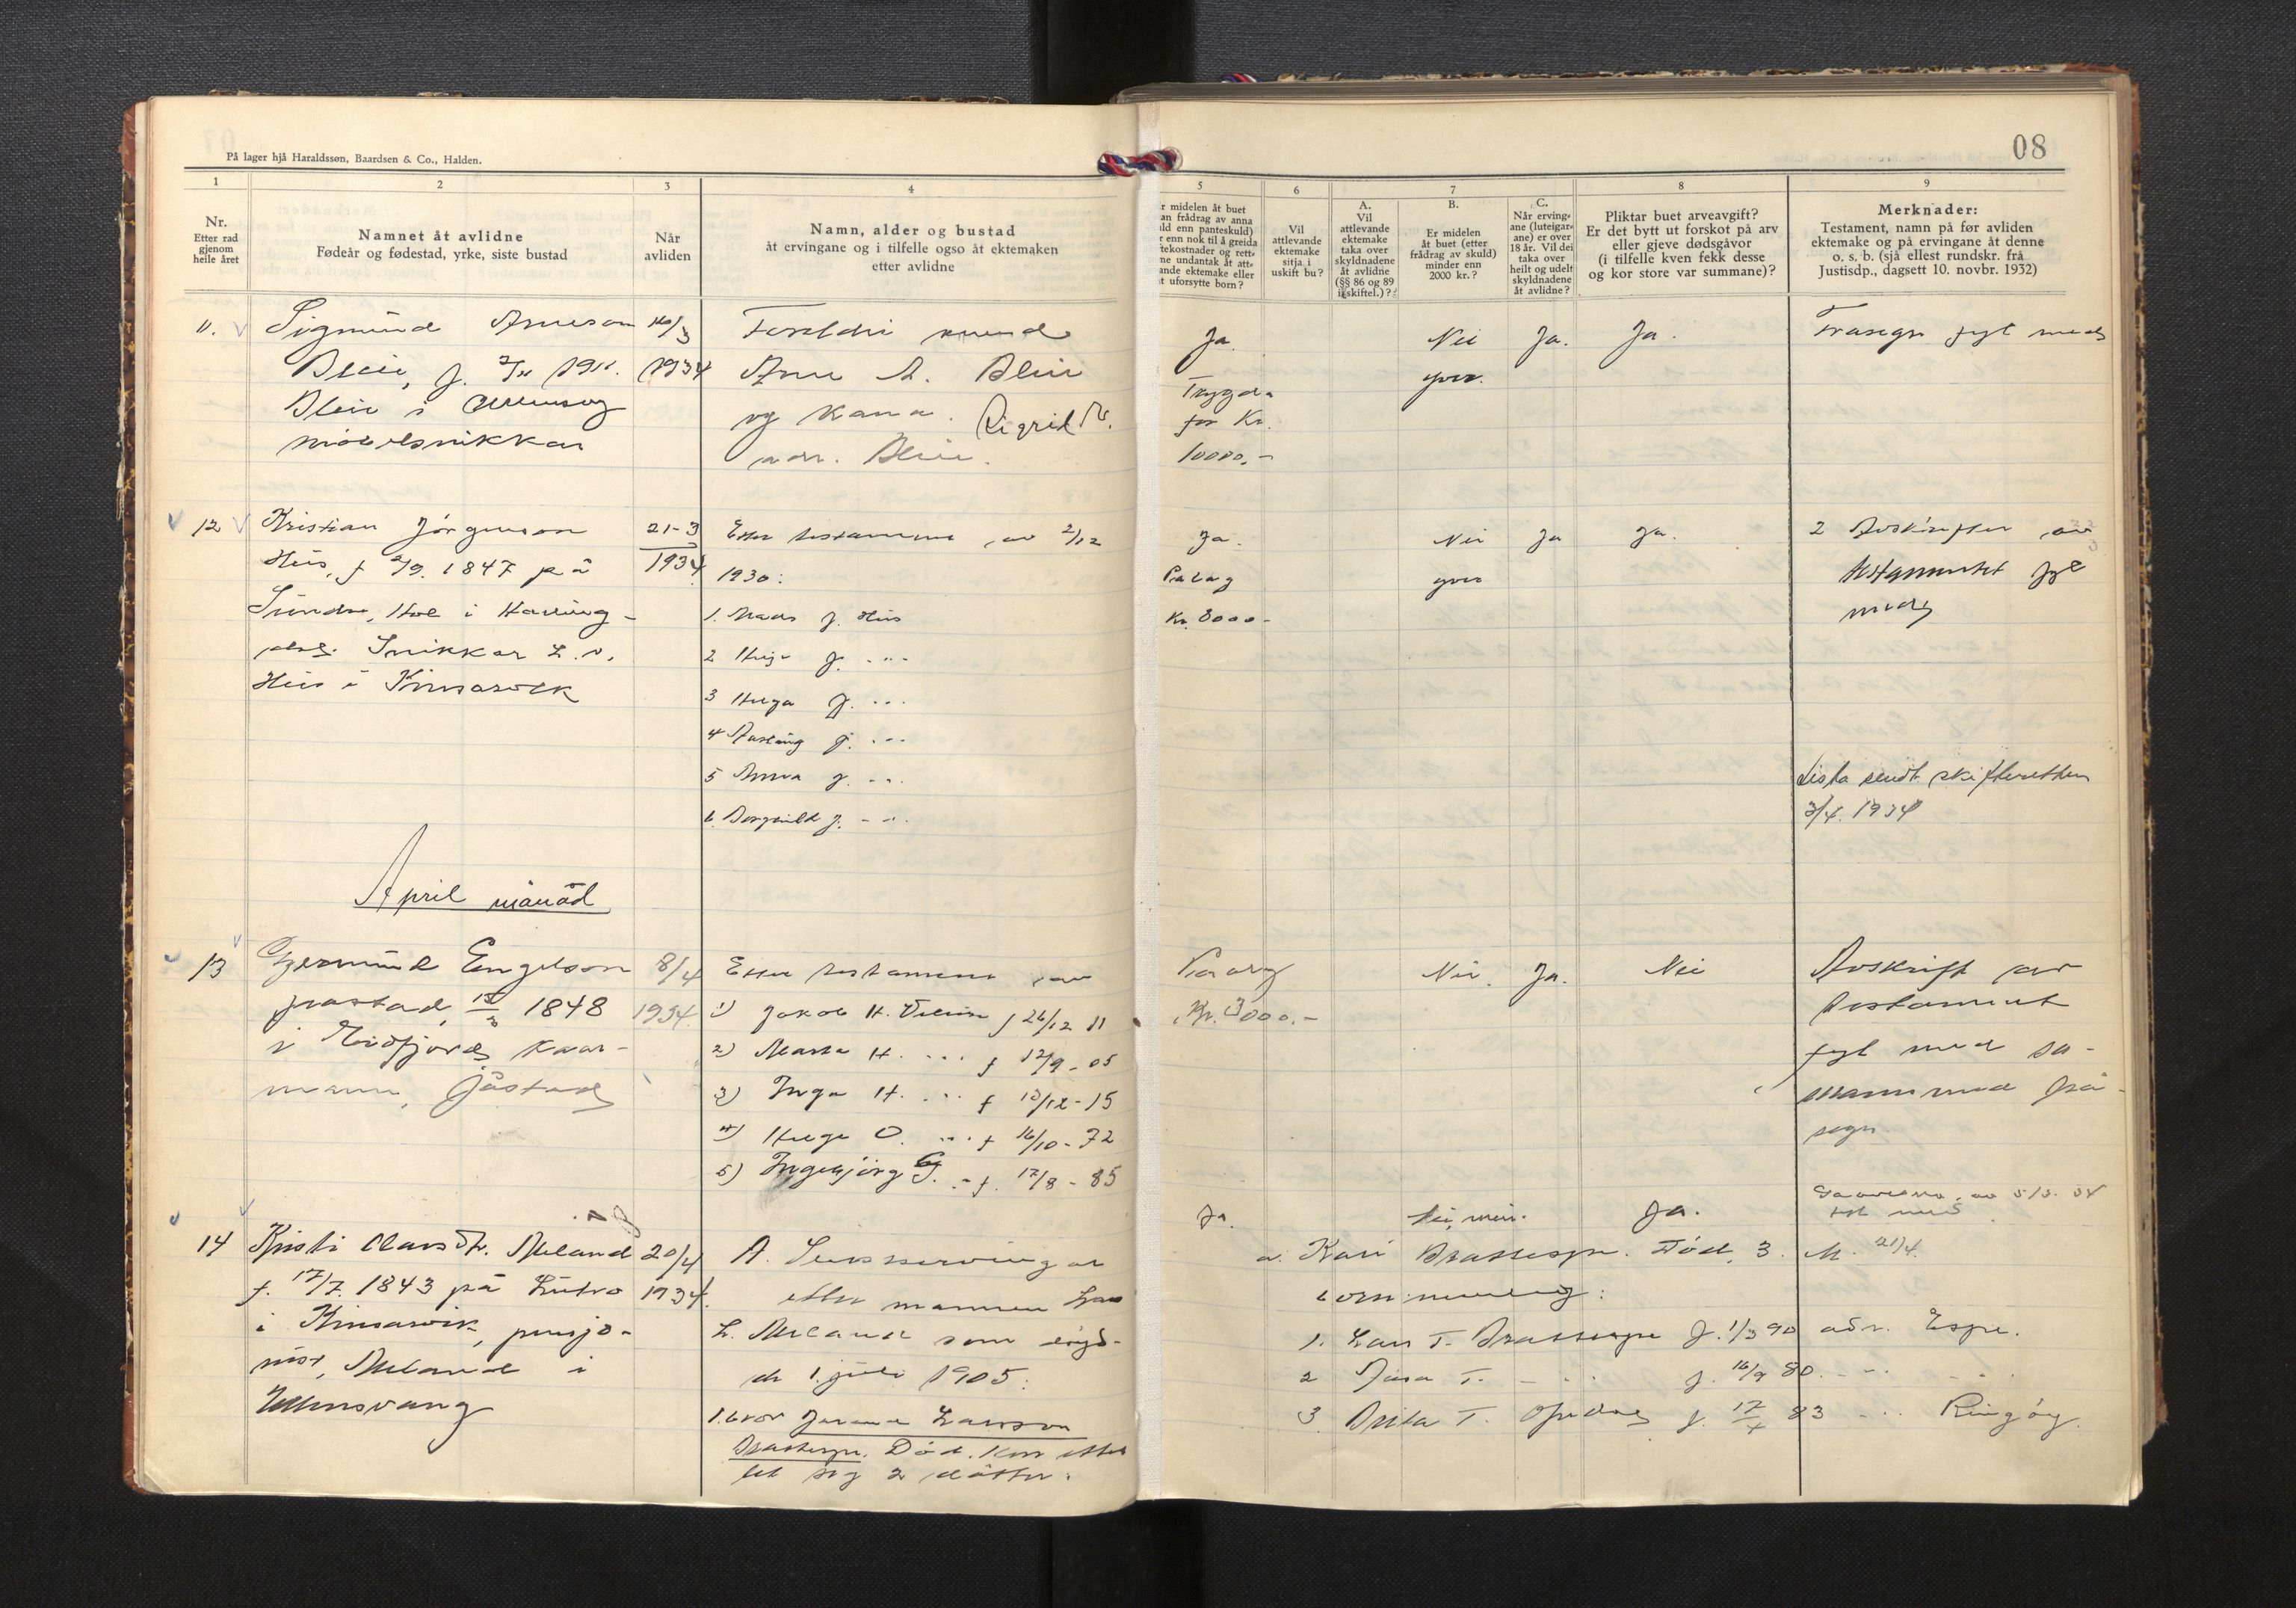 På lager hjå Haraldssøn, Baardsen & Co., Halden.
08
1
2
3
4
5
6
7
8
9
Nr.
Etter rad
gjenom
heile året
Namnet åt avlidne
Fødeår og fødestad, yrke, siste bustad
Når
avliden
Namn, alder og bustad
åt ervingane og i tilfelle også åt ektemaken
etter avlidne
r midelen åt buet
an frådrag av anna
ld enn panteskuld)
r enn nok til å greida
tekostnader og rett-
ne undantak åt att-
ande ektemake eller
t uforsytte born?
Vil
attlevande
ektemake
sitja i
uskift bu?
A.
Vil
attlevande
ektemake
taka over
skyldnadene
åt avlidne
(§§ 86 og 89
i skiftel.)?
B.
Er midelen
åt buet (etter
frådrag av skuld)
minder enn
2000 kr.?
C.
Når erving-
ane (luteigar-
ane) er over
18 år. Vil dei
taka over
heilt og udelt
skyldnadene
åt avlidne?
Pliktar buet arveavgift?
Er det bytt ut forskot på arv
eller gjeve dødsgåvor
(i tilfelle kven fekk desse
og kor store var summane)?
Merknader:
Testament, namn på før avliden
ektemake og på ervingane åt denne
o. s. b. (sjå ellest rundskr. frå
Justisdp., dagsett 10. novbr. 1932)
11.
Sigmund Arneson
Bleie, f. 1911.
Bleie i Ullensvg
møbelsnikkar
1934
Foreldri
Arne A. Bleie
og kona Sigrid
adr. Bleie.
Ja.
Trygda
for Kr.
10000,-
Nei
yver.
Ja.
Ja.
Fråsegn fyl med
12
Kristian Jørgenson
Hus, f 1847 på
Sundre, Hol i Halling-
dal. Snikkar
Hus i Kinsarvik
21-3
1934
Etter testament av 2/12
1930:
1. Mads J. Hus
2 Helge J. - " -
3 Helga J. - " -
4 J. - " -
5 Anna J. - " -
6. Borghild J. - " -
Ja.
Paalag
Kr. 8000-
Nei
yver
Ja
Ja.
2 Avskrifter av
testamentet fyl
med
Lista sendt skifteretten
3/4. 1934
April månad
13
Germund Engelson
Jåstad, 1848
i Eidfjord, Kaar-
mann, Jåstad
8/4
1934.
Etter testament av
1) Jakob H. f 26/12 11
2) Marta H. - " - f 12/9 - 05
3) Inga H. - " - f 12 - 15
4) Helge O. - " - f 16/10 - 72
5) Ingebjørg G. - " - f. 17/8 - 85
Paalag
Kr. 3000.-
Nei.
Ja.
Nei
Avskrift av
testament
fyl med sa-
man med frå-
segn
14
Kristi Olavsdtr. Meland
f. 17/7. 1843 på Lutro
i Kinsarvik, pensjo-
nist, Meland i
Ullensvang
20/4
1934.
A. Livsservingar
etter mannen Lars
L. Meland som døyd-
de 1. juli 1905:
1. bror Larsson
Brattespe. Død. Kor etter
let seg 2 døtter.
Ja.
Nei, min.
Ja.
fyl med
a. Kari Brattespe. Død, 3.
born:
M. 21/4.
1. Lars T. Brattespe f. 1/3 90 adr. Espe.
2 T. - " - f. 16/9 80. - " - - " -
3 Brita T. Opedal f. 83 - " - Ringøy.